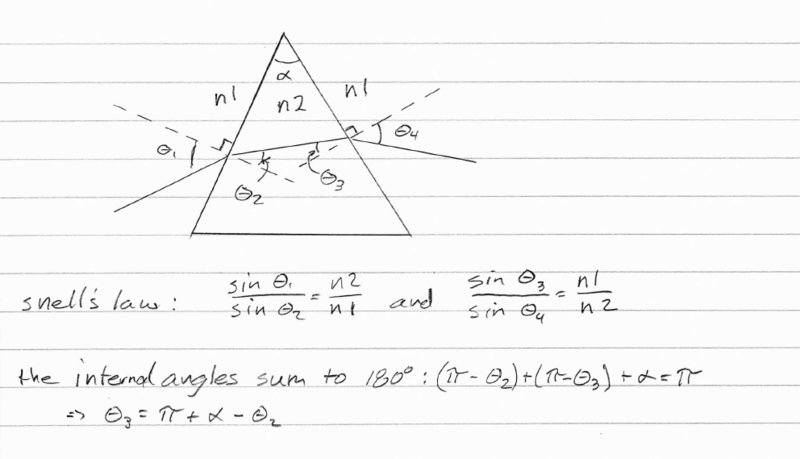 α
n1
n2
n1
θ1
θ4
θ2
θ3
snell's law : sin θ1 / sin θ2 = n2 / n1 and sin θ3 / sin θ4 = n1 / n2
the internal angles sum to 180° : (π - θ2) + (π - θ3) + α = π
⇒ θ3 = π + α - θ2